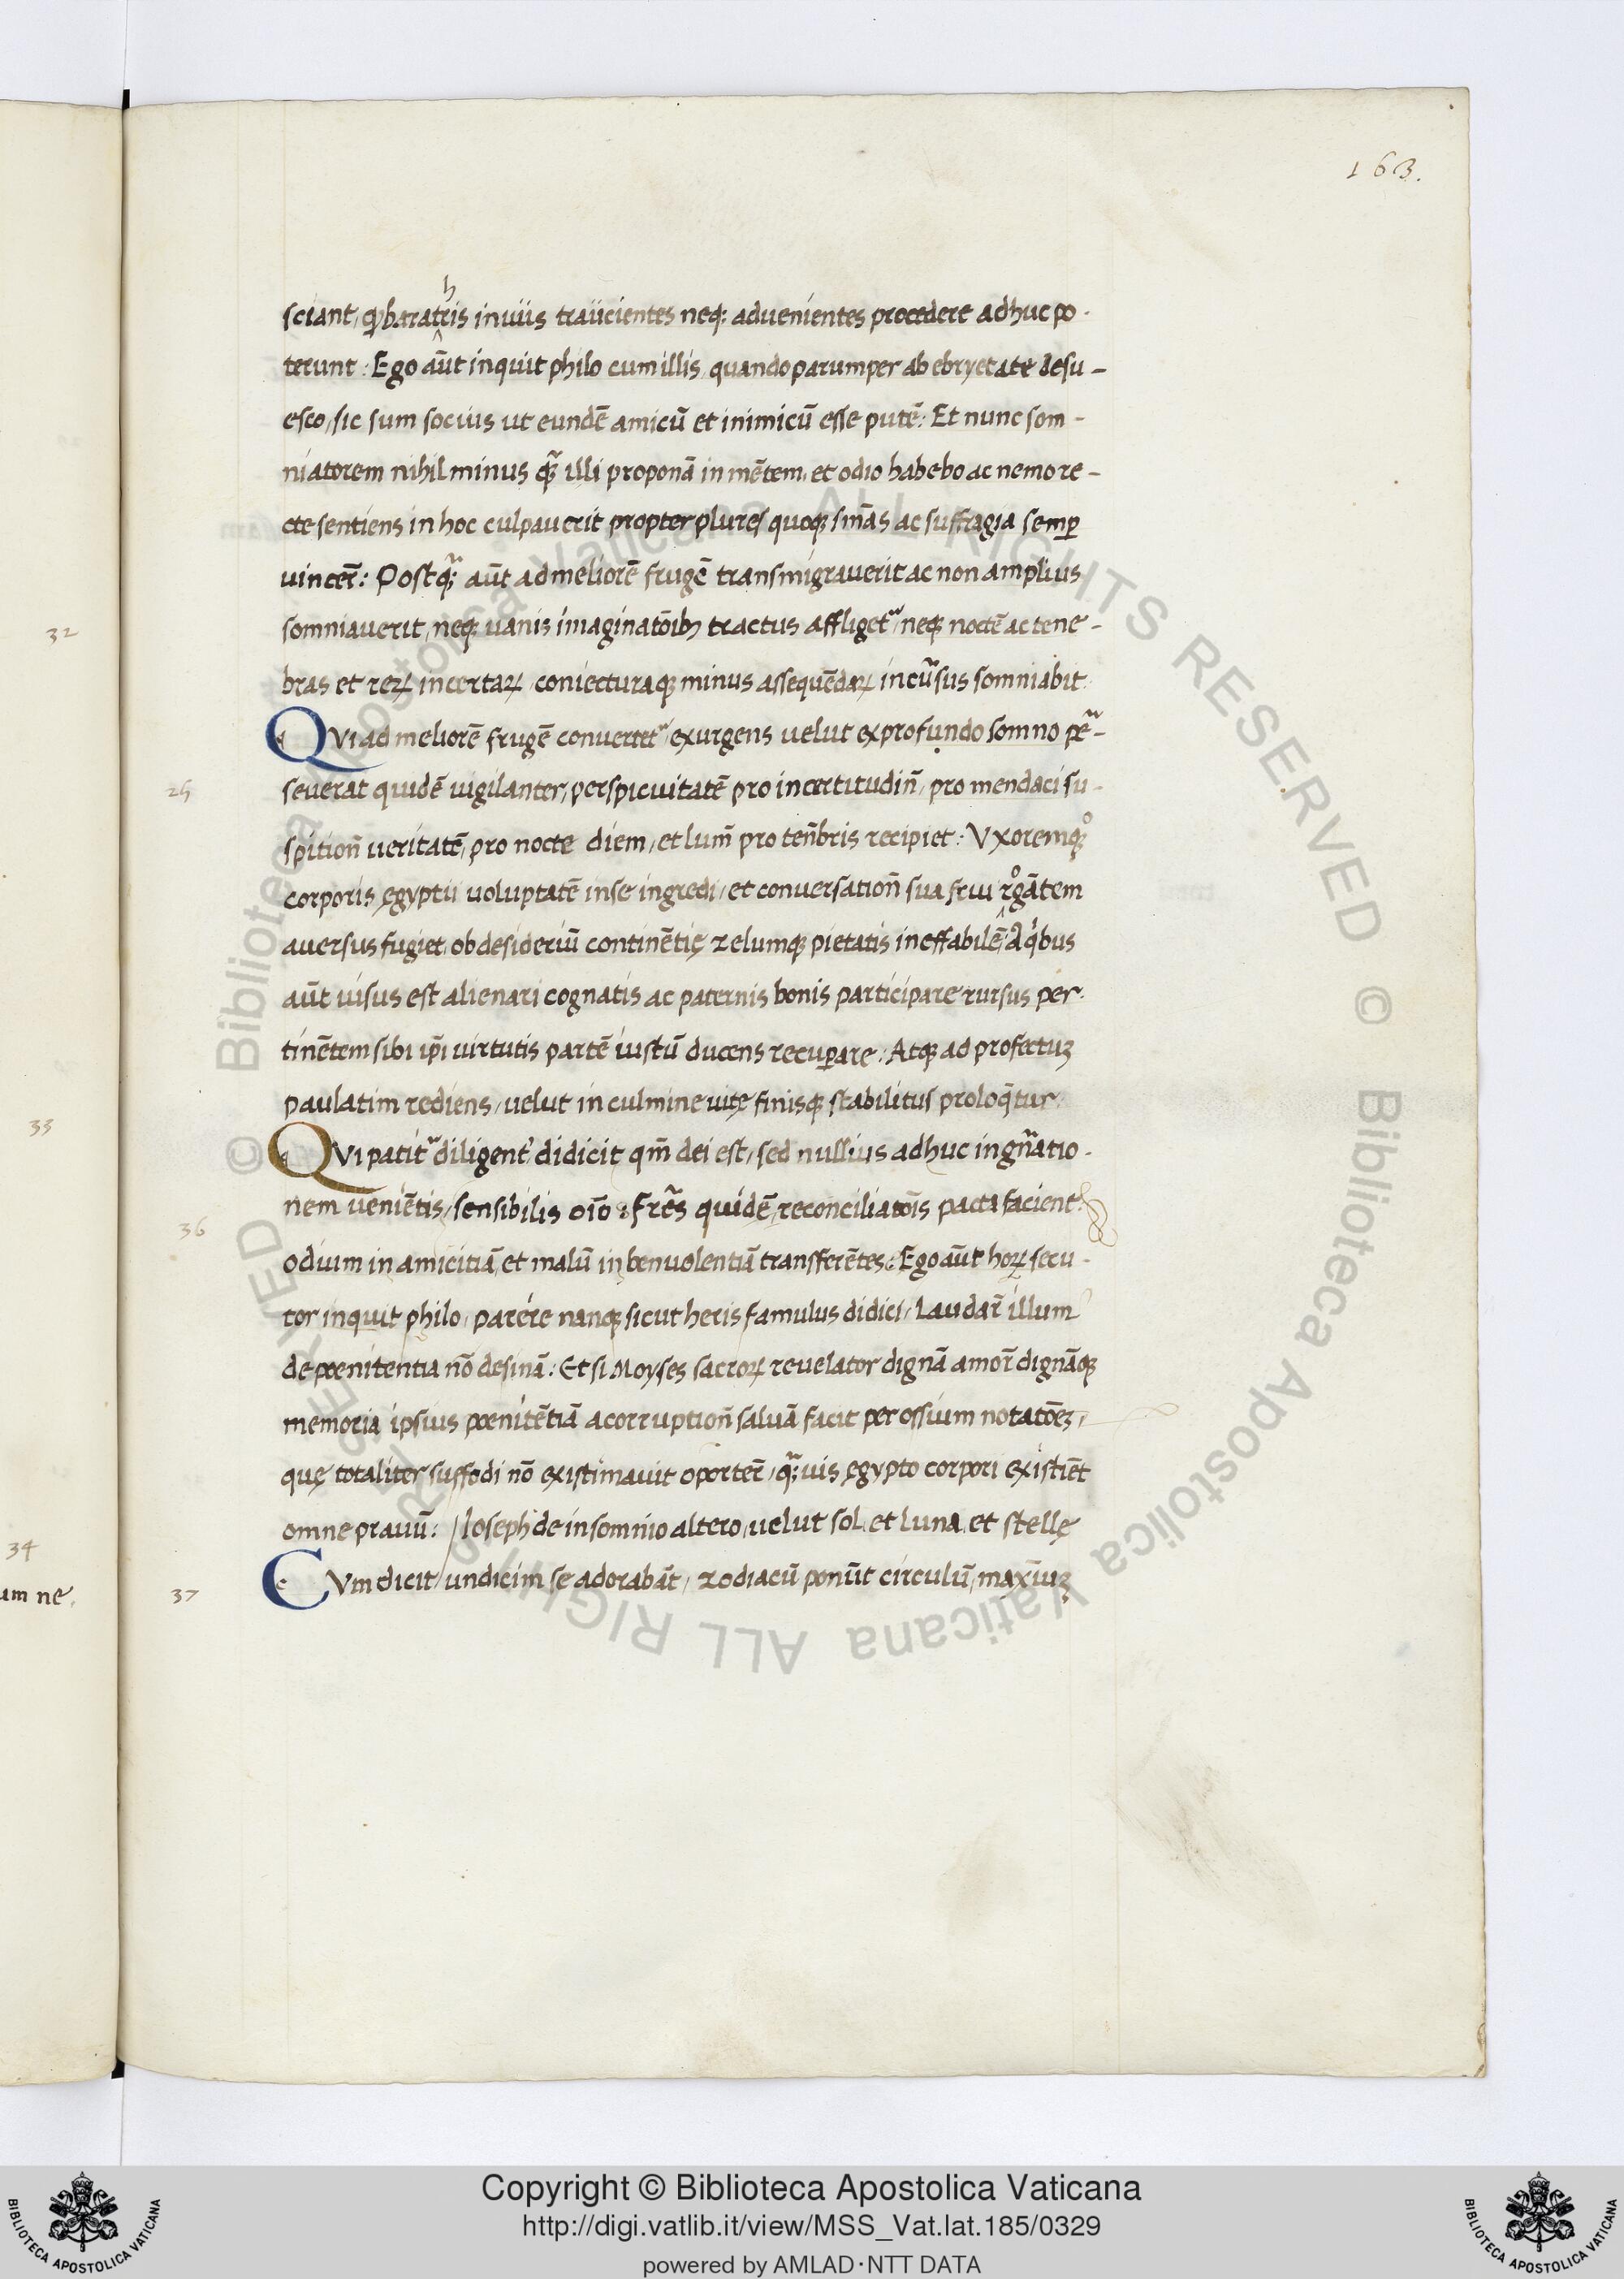 163.
sciant, ꝙ barathris inuiis traiicientes neq; aduenientes procedere adhuc po-
terunt: Ego aūt inquit philo cum illis, quando parumper ab ebryetate desu-
esco, sic sum socius ut eundē amicū et inimicū esse putē: Et nunc som-
niatorem nihil minus illi proponā in mētem, et odio habebo ac nemo re-
cte sentiens in hoc culpauerit propter plures quoq; sn̄ias ac suffragia semꝑ
uincer̄: Postq̃; aūt ad meliorē frugē transmigrauerit ac non amplius
32
somniauerit, neq; uanis imaginatōib; tractus affliget᷑, neq; noctē ac tene-
bras et reꝝ incertaꝝ, coniecturaq; minus assequēdaꝝ incursus somniabit.
QVi ad meliorē frugē conuertet᷑, exurgens uelut ex profundo somno
25
seuerat quidē uigilanter, perspicuitatē pro incertitudin̄, pro mendaci su-
spition̄ ueritatē, pro nocte diem, et lum̄ pro ten̄bris recipiet: Vxoremq;
corporis ęgyptii uoluptatē in se ingredi, et conuersation̄ sua frui rogātem
auersus fugiet, ob desideriū continētię zelumq; pietatis ineffabilē, A qͥbus
aūt uisus est alienari cognatis ac paternis bonis participare rursus per-
tinētem sibi ip̄i uirtutis partē iustū ducens recuꝑare: Atq; ad profectuꝫ
33
paulatim rediens, uelut in culmine uitę finisq; stabilitus proloq̄tur.
QVi patit᷑ diligent̾ didicit qm̄ dei est, sed nullius adhuc in gn̄atio-
36
nem ueniētis, sensibilis oīo: Fr̄es quidē reconciliatōis pacta facient
odium in amicitiā, et malū in benuolentiā transferētes: Ego aūt hoꝝ secu-
tor inquit philo, parere nanq; sicut heris famulus didici, Laudar̄ illum
de pœnitentia nō desinā: Et si Moyses sacroꝝ reuelator dignā amor̄ dignāq;
memoria ipsius pœnitētiā a corruption̄ saluā facit per ossium notatōeꝫ,
quę totaliter suffodi nō existimauit oporter̄, q̃;uis ęgypto corpori existiēt
34
omne prauū: Ioseph de insomnio altero, uelut sol, et luna, et stellę
um ne.
37
CVm dicit undicim se adorabāt, zodiacū ponūt circulū, maxīuꝫ
© Biblioteca Apostolica Vaticana ALL RIGHTS RESERVED © Biblioteca Apostolica Vaticana ALL RIGHTS RESERVED
BIBLIOTECA APOSTOLICA VATICANA
Copyright © Biblioteca Apostolica Vaticana
http://digi.vatlib.it/view/MSS_Vat.lat.185/0329
powered by AMLAD·NTT DATA
BIBLIOTECA APOSTOLICA VATICANA